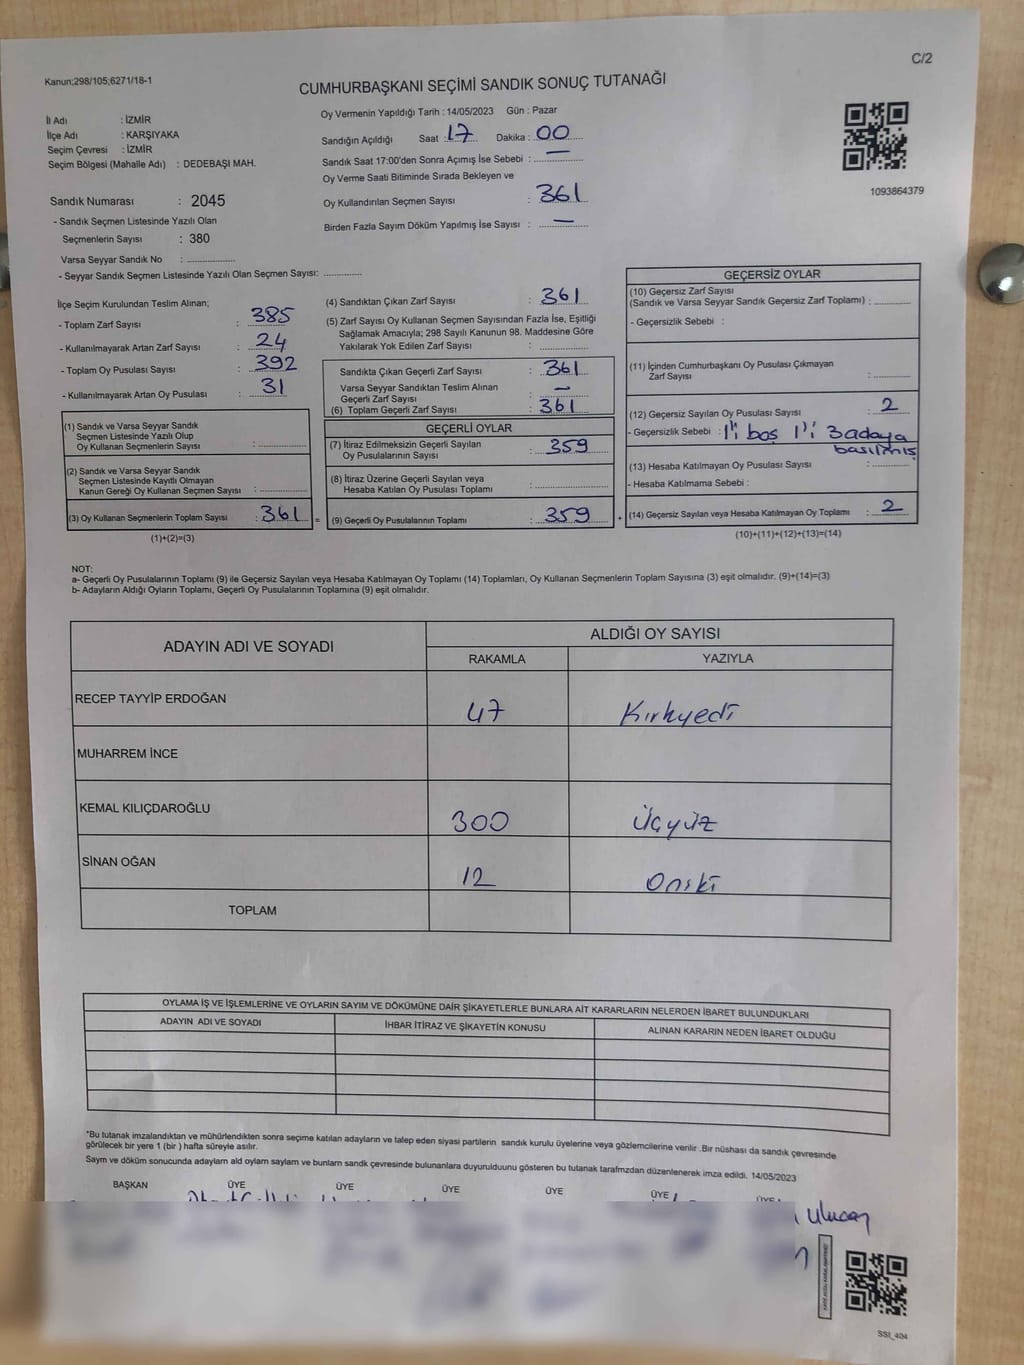 C/2
Kanun;298/105;6271/18-1
CUMHURBAŞKANI SEÇİMİ SANDIK SONUÇ TUTANAĞI
İl Adı : İZMİR
İlçe Adı : KARŞIYAKA
Seçim Çevresi : İZMİR
Seçim Bölgesi (Mahalle Adı) : DEDEBAŞI MAH.
Sandık Numarası : 2045
- Sandık Seçmen Listesinde Yazılı Olan
Seçmenlerin Sayısı : 380
Varsa Seyyar Sandık No : ..............
- Seyyar Sandık Seçmen Listesinde Yazılı Olan Seçmen Sayısı: ............
Oy Vermenin Yapıldığı Tarih : 14/05/2023 Gün : Pazar
Sandığın Açıldığı Saat : 17 Dakika : 00
Sandık Saat 17:00'den Sonra Açımış İse Sebebi : —
Oy Verme Saati Bitiminde Sırada Bekleyen ve
Oy Kullandırılan Seçmen Sayısı : 361
Birden Fazla Sayım Döküm Yapılmış İse Sayısı : —
1093864379
İlçe Seçim Kurulundan Teslim Alınan;
- Toplam Zarf Sayısı : 385
- Kullanılmayarak Artan Zarf Sayısı : 24
- Toplam Oy Pusulası Sayısı : 392
- Kullanılmayarak Artan Oy Pusulası : 31
(1) Sandık ve Varsa Seyyar Sandık
Seçmen Listesinde Yazılı Olup
Oy Kullanan Seçmenlerin Sayısı : ............
(2) Sandık ve Varsa Seyyar Sandık
Seçmen Listesinde Kayıtlı Olmayan
Kanun Gereği Oy Kullanan Seçmen Sayısı : ............
(3) Oy Kullanan Seçmenlerin Toplam Sayısı : 361 =
(1)+(2)=(3)
(4) Sandıktan Çıkan Zarf Sayısı : 361
(5) Zarf Sayısı Oy Kullanan Seçmen Sayısından Fazla İse, Eşitliği
Sağlamak Amacıyla; 298 Sayılı Kanunun 98. Maddesine Göre
Yakılarak Yok Edilen Zarf Sayısı : ............
Sandıkta Çıkan Geçerli Zarf Sayısı : 361
Varsa Seyyar Sandıktan Teslim Alınan
Geçerli Zarf Sayısı : —
(6) Toplam Geçerli Zarf Sayısı : 361
GEÇERLİ OYLAR
(7) İtiraz Edilmeksizin Geçerli Sayılan
Oy Pusulalarının Sayısı : 359
(8) İtiraz Üzerine Geçerli Sayılan veya
Hesaba Katılan Oy Pusulası Toplamı : ............
(9) Geçerli Oy Pusulalarının Toplamı : 359 +
GEÇERSİZ OYLAR
(10) Geçersiz Zarf Sayısı
(Sandık ve Varsa Seyyar Sandık Geçersiz Zarf Toplamı) : ........
- Geçersizlik Sebebi :
(11) İçinden Cumhurbaşkanı Oy Pusulası Çıkmayan
Zarf Sayısı : ........
(12) Geçersiz Sayılan Oy Pusulası Sayısı : 2
- Geçersizlik Sebebi : 1'i boş 1'i 3 adaya
basılmış
(13) Hesaba Katılmayan Oy Pusulası Sayısı : ........
- Hesaba Katılmama Sebebi :
(14) Geçersiz Sayılan veya Hesaba Katılmayan Oy Toplamı : 2
(10)+(11)+(12)+(13)=(14)
NOT:
a- Geçerli Oy Pusulalarının Toplamı (9) ile Geçersiz Sayılan veya Hesaba Katılmayan Oy Toplamı (14) Toplamları, Oy Kullanan Seçmenlerin Toplam Sayısına (3) eşit olmalıdır. (9)+(14)=(3)
b- Adayların Aldığı Oyların Toplamı, Geçerli Oy Pusulalarının Toplamına (9) eşit olmalıdır.
ADAYIN ADI VE SOYADI
ALDIĞI OY SAYISI
RAKAMLA YAZIYLA
RECEP TAYYİP ERDOĞAN 47 Kırkyedi
MUHARREM İNCE
KEMAL KILIÇDAROĞLU 300 Üçyüz
SİNAN OĞAN 12 Oniki
TOPLAM
OYLAMA İŞ VE İŞLEMLERİNE VE OYLARIN SAYIM VE DÖKÜMÜNE DAİR ŞİKAYETLERLE BUNLARA AİT KARARLARIN NELERDEN İBARET BULUNDUKLARI
ADAYIN ADI VE SOYADI İHBAR İTİRAZ VE ŞİKAYETİN KONUSU ALINAN KARARIN NEDEN İBARET OLDUĞU
*Bu tutanak imzalandıktan ve mühürlendikten sonra seçime katılan adayların ve talep eden siyasi partilerin sandık kurulu üyelerine veya gözlemcilerine verilir .Bir nüshası da sandık çevresinde
görülecek bir yere 1 (bir ) hafta süreyle asılır.
Sayım ve döküm sonucunda adayların ald oyların sayıları ve bunların sandık çevresinde bulunanlara duyurulduunu gösteren bu tutanak tarafmzdan düzenlenerek imza edildi. 14/05/2023
BAŞKAN ÜYE ÜYE ÜYE ÜYE ÜYE ÜYE
Ulucan
SSI_404